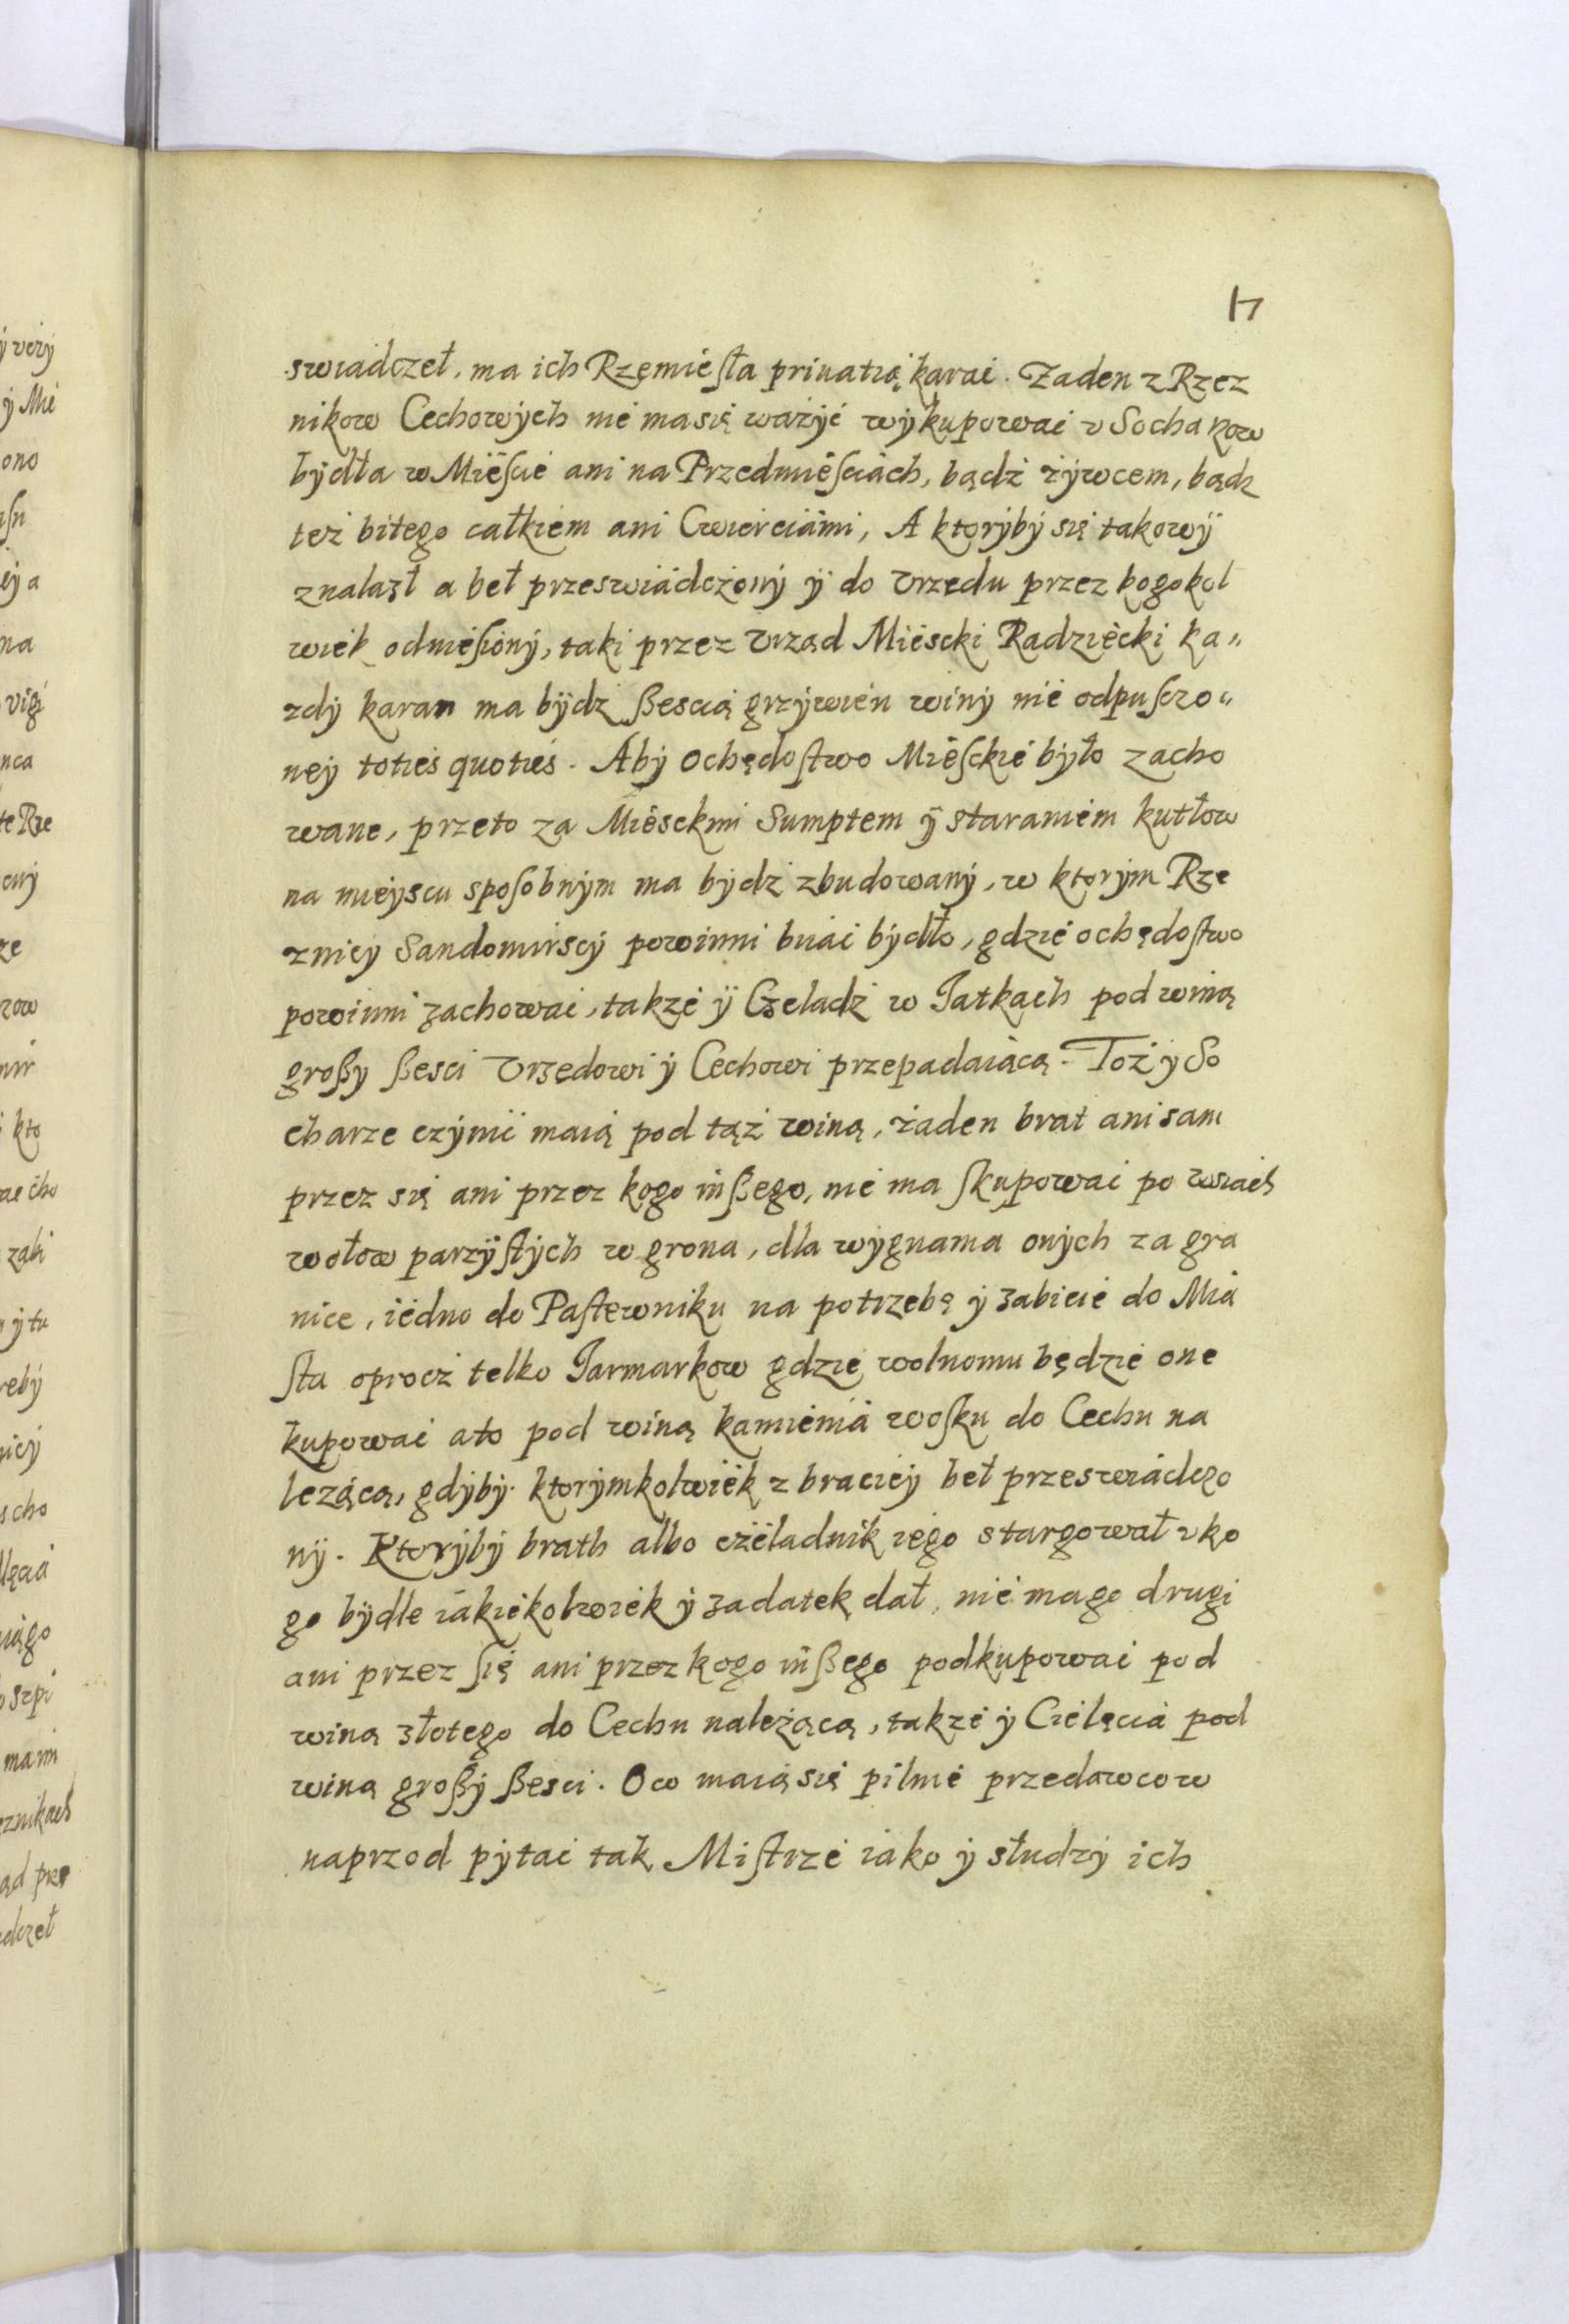 17
swiadczeł, ma ich Rzęmiesła priuatią karać. Zaden z Rzez
nikow Cechowych nie ma się ważyć wykupować v Sochakow
bydła w Mieście ani na Przedmieściach, bądź żywcem, bądz
też bitego całkiem ani Cwierciami, A ktoryby się takowy
znalazł a beł przeswiadczony y do Vrzędu przez kogokol
wiek odniesiony, taki przez Vrząd Miescki Radziecki ka„
zdy karan ma bydz ßescią grzywien winy nie odpusczo„
ney toties quoties. Aby Ochędostwo Miesckie było zacho
wane, przeto za Miesckmi Sumptem y staraniem kutłow
na mieyscu sposobnym ma bydz zbudowany, w ktorym Rze
znicy Sandomirscy powinni buać bydło, gdzie ochędostwo
powinni zachować, także y Czeladż w Jatkach pod winą
großy ßesci Vrzędowi y Cechowi przepadaiącą. Toż y So
charze czynić maią pod tąż winą, żaden brat ani sam
przez się ani przez kogo inßego, nie ma skupować po wsiach
wołow parzystych w grona, dla wygnania onych za gra
nice, iedno do Pastewniku na potrzebę y zabicie do Mia
sta oprocz telko Jarmarkow gdzie wolnomu będzie one
kupować a to pod winą kamienia wosku do Cechu na
lezącą, gdyby ktorymkolwiek z braciey beł przeswiadczo
ny. Ktoryby brath albo czeladnik iego stargował v ko
go bydle iakiekolwiek y zadatek dał, nie ma go drugi
ani przez się ani przez kogo inßego podkupować pod
winą złotego do Cechu należącą, takze y Cielęcia pod
winą großy ßesci. O co maią się pilnie przedawcow
naprzod pytać tak Mistrze iako y słudzy ich